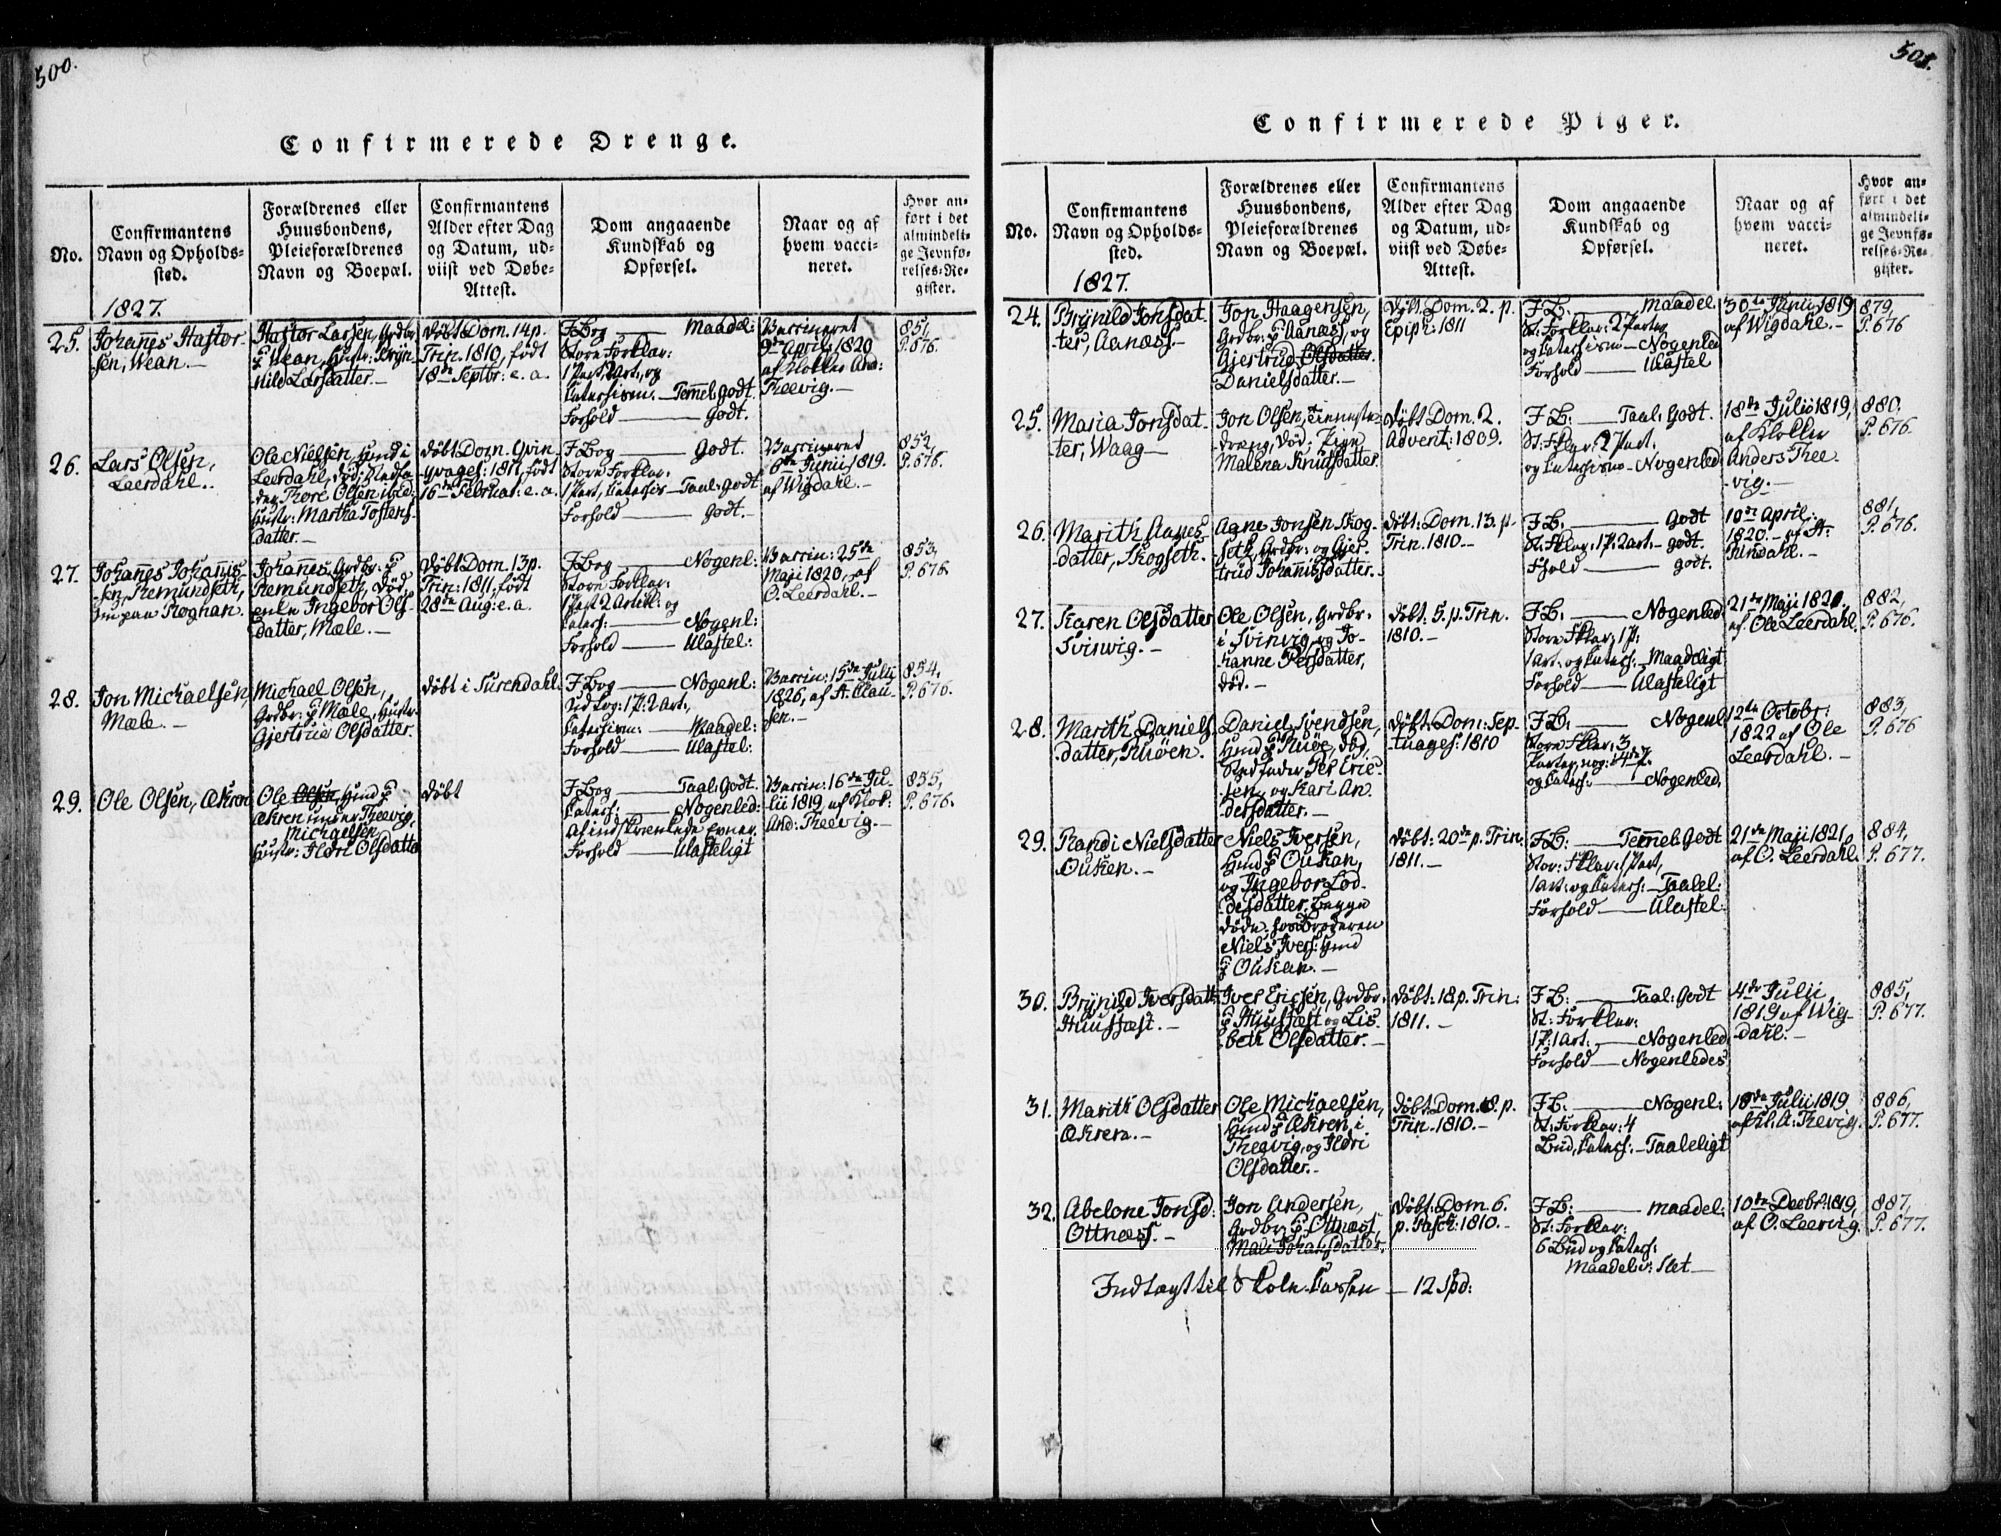 500.
Confirmerede Drenge.
No.
Confirmantens
Navn og Opholds-
sted.
Forældrenes eller
Huusbondens,
Pleieforældrenes
Navn og Boepæl.
Confirmantens
Alder efter Dag
og Datum, ud-
viist ved Døbe-
Attest.
Dom angaaende
Kundskab og
Opførsel.
Naar og af
hvem vacci-
neret.
Hvor an-
ført i det
almindeli-
ge Jevnfø-
relses-Re-
gister.
1827.
25.
Johannes Hastor-
sen, Wean.-
Hastor Larsen, Grdbr.
Wean, Hustr: Bryn-
hild Larsdatter.-
døbt Dom. 14 p.
Trin. 1810, født
18de Septbr: e. a.
F. Bog — Maadel:
Store Forklar:
1 Part, 2 Art., og
Catechism. - Temel. Godt
Forhold — Godt.
Vaccineret
9de April 1820
af Klokker And:
Theevig.-
851,
P. 676.
26.
Lars Olsen,
Leerdahl.
Ole Nielsen, Huusd i
Leerdahl, død; Stedfa-
der Thore Olsen ibid:
Hustr: Martha Tostens-
datter.-
døbt Dom. Qvin-
qvages: 1811, født
16de Februar: e. a.
F. Bog — Godt.
Store Forklar.
1 Part, Catechis - Taal: godt
Forhold — godt.-
Vaccineret
6de Junii 1819.
af Wigdahl.-
852,
P. 676.
27.
Johannes Johannes-
sen, Remundset,
Roghan.
Johannes, Grdbr:
Remundset, død
Ingebor Ols-
datter, Mæle.-
døbt Dom. 13 p.
Trin: 1811, født
28de Aug: e. a.
F. Bog — Nogenl:
Store Forklar:
1 Part 2 Artikl: og
Catech: — Nogenl:
Forhold — Ulastel:
Vaccin: 25de
Maji 1820, af
O. Leerdahl.
853,
P. 676.
28.
Jon Michaelsen,
Mæle.-
Michael Olsen,
Grdbr: Mæle, Hustr.
Gjertrue Olsdatter.
døbt i Surendahl.
F. Bog — Nogenl:
Udtog: 1 P: 2 Art.,
Catechism: — Maadel:
Forhold — Ulastel:
Vaccin: 15de Julii
1826, af A. Clau-
sen.-
854,
P. 676.
29.
Ole Olsen, Ækren
Ole Olsen, Huusd
Ækren under Theevig,
Michaelsen,
Hustr: Ildri Olsdatter
døbt
F. Bog — Taal. Godt.
Catech: — Nogenled:
Af indskrenkede Evner.
Forhold — Ulasteligt
Vaccin: 16de Ju-
lii 1819, af Klok:
And: Theevig.-
855,
P. 676.
501.
Confirmerede Piger.
No.
Confirmantens
Navn og Opholds-
sted.
Forældrenes eller
Huusbondens,
Pleieforældrenes
Navn og Boepæl.
Confirmantens
Alder efter Dag
og Datum, ud-
viist ved Døbe-
Attest.
Dom angaaende
Kundskab og
Opførsel.
Naar og af
hvem vacci-
neret.
Hvor an-
ført i det
almindeli-
ge Jevnfø-
relses-Re-
gister.
1827.
24.
Brynild Jonsdat-
ter, Aanæss-
Jon Haagensen,
Grdbr: Aanæss, og
Gjertrud Olsdatter.
Danielsdatter.-
døbt. Dom. 2. p.
Epiph: 1811
F. B: — Maadel
St: Forklar: 2 Parter
og Catechism - Nogenled
Forhold — Ulastel
30te Junii 1819
af Wigdahl.-
879,
P. 676
25.
Maria Jonsdat-
ter, Waag-
Jon Olsen, Tieneste-
dreng, død: Pige
Malena Knutsdatter.
døbt Dom. 2.
Advent: 1809.
F. B: — Taal: Godt.
St: Fklar: 2 Part.
og Catechism - Nogenled
18de Julii 1819,
af Klokker
Anders Thee-
vig.-
880,
P. 676.
26.
Marith Aanes-
datter, Skogseth.-
Aane Jonsen Skog-
seth, Grdbr: og Gjer-
trud Johannisdatter.
døbt: Dom. 13. p.
Trin. 1810.-
F. B. — Godt
St: Fklar: 1 P. 2 art. - godt.
Fhold — godt.
10de April:
1820.- af A.
881,
P. 676.
27.
Karen Olsdatter
Svinvig.-
Ole Olsen, Grdbr.
i Svinvig, og Jo-
hanne Persdatter,
død.-
døbt: 5. p. Trin.
1810.-
F. B: — Nogenled
Store Fklar: 1 P.
1 Art. og Catech: - Maadeligt
Forhold — Ulasteligt
21de Maji 1820.
af Ole Leerdahl.
882,
P. 676.
28.
Marith Daniels-
datter,
Daniel Svendsen,
Huusd død,
Stedfader Per Eric-
sen, og Kari An-
dersdatter.-
døbt: Dom: Sep-
tuages: 1810
F. B: — Nogenl
Store Fklar: 3
og Catech: — Nogenled.
12te Octobr:
1822 af Ole
Leerdahl.-
883,
P. 676
29.
Randi Nielsdatter
Ousen.-
Niels Iversen,
Huusd Ousan,
og Ingebor Lod-
desdatter, begge
døde, hos Broderen
Niels Ivers: Huusd
Ousan.-
døbt: 20de p. Trin.
1811.-
F. B: — Temel. Godt
Stor: Fklar: 1 Part,
1 Art: og Catech: - Taalel:
Forhold — Ulastel:
21de Maji 1821,
af O. Leerdahl.
884,
P. 677.
30.
Brynild Iversdatt:
Huusfæst.-
Iver Ericsen, Grdbr:
Huusfæst og Lis-
beth Olsdatter.-
døbt: 18 p. Trin:
1811.-
F. B: — Taal: Godt
St: Forklar:
1 P: 1 Art: — Nogenled
Forhold — Nogenledes
4de Julii
1819 af Wig-
dahl.-
885,
P. 677.
31.
Marith Olsdatter
Ækren.-
Ole Michaelsen,
Huusd Ækren, i
Theevig, og Ildri
Olsdatter.-
døbt: Dom. 8. p.
Trin. 1810.-
F. B: — Nogenl:
St: Forklar: 4
Bud, Catech: - Taaleligt
18de Julii 1819.
af Kl. A: Thevig.
886,
P. 677.
32.
Abelone Jonsd:
Ottness.-
Jon Andersen,
Grdbr: Ottness,
Mali Johansdatter.
døbt: Dom. 6.
p. Pasch: 1810.-
F. B: — maadel:
St: Forklar:
6 Bud og Catech:
Maadelig: Slet —
10de Decbr. 1819,
af O. Leervig.
887,
P. 677.
Indtagt til Skole-Cassen — 12 Spd: